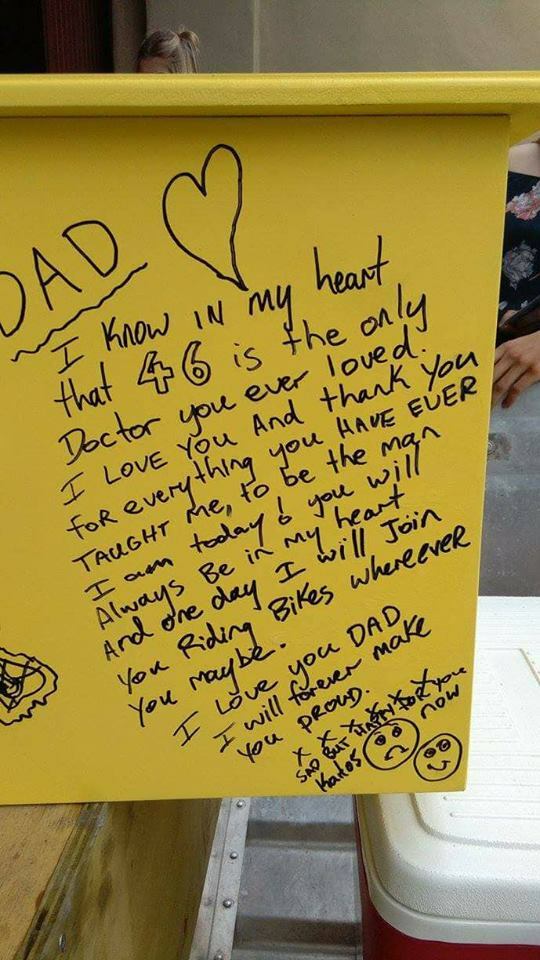 DAD
I KNOW IN my heart
that 46 is the only
Doctor you ever loved.
I LOVE YOU And thank you
FOR everything you HAVE EVER
TAUGHT me, to be the man
I am today! you will
Always Be in my heart
And one day I will Join
you Riding Bikes whereever
you maybe.
I love you DAD
I will forever make
you PROUD.
x x x x x x
SAD BUT HAPPY FOR you
now